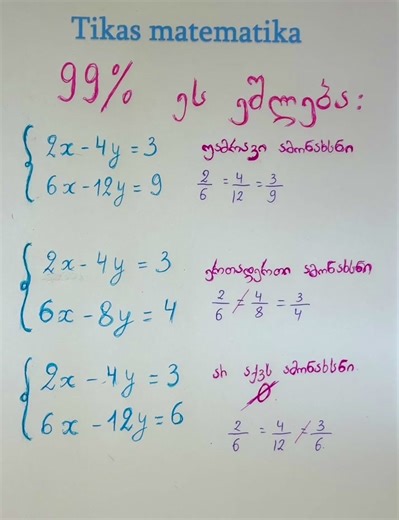 Tikas matematika
99% ეს ეშლება:
2x - 4y = 3
6x - 12y = 9
უამრავი ამონახსნი
2/6 = 4/12 = 3/9
2x - 4y = 3
6x - 8y = 4
ერთადერთი ამონახსნი
2/6 ≠ 4/8 = 3/4
2x - 4y = 3
6x - 12y = 6
არ აქვს ამონახსნი
∅
2/6 = 4/12 ≠ 3/6